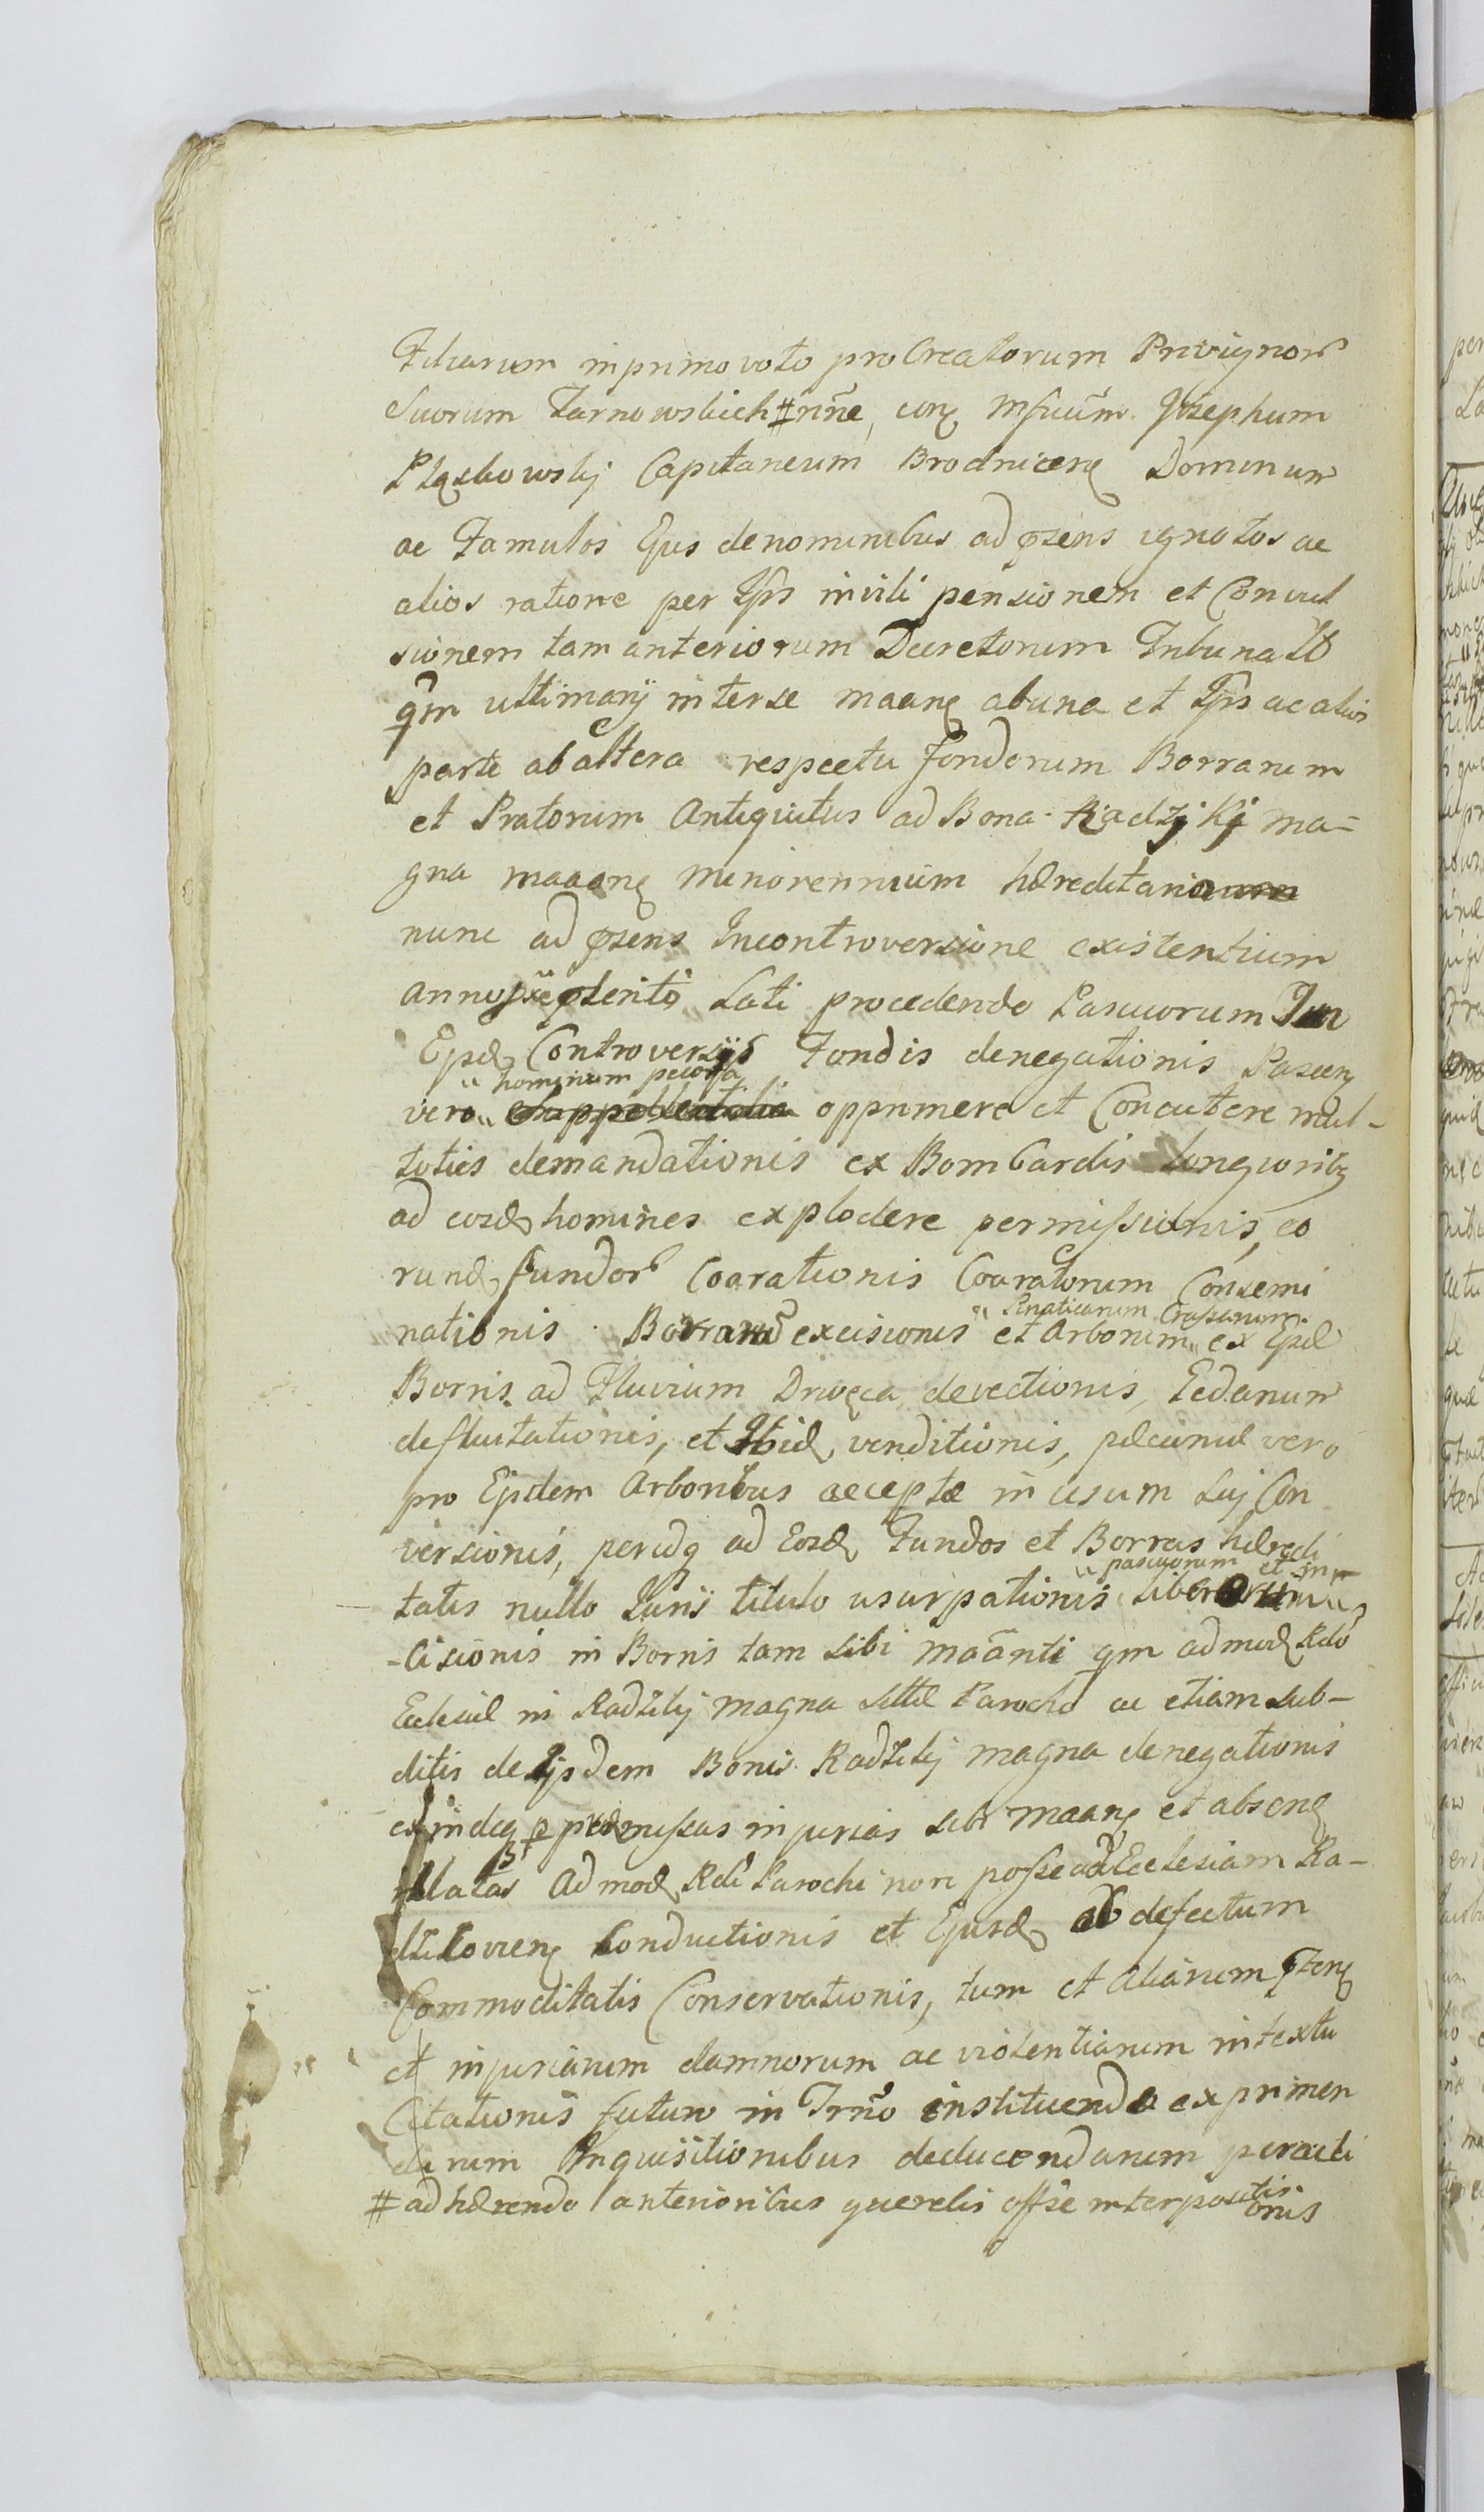 Filiarum in primo voto pro Creatorum Privignor
Suorum Tarnowskich # nñe, conq Mfũcum Josephum
Pląskowskj Capitaneum Brodnicenq Dominum
ac Famulos Ejus de nominibus ad pzens ignotos ac
alios ratione per Ipsos in vili pensionem et Convul
sionem tam anteriorum Decretorum Tribunal
qm ultimarij inter se maanq ab una et Ipsos ac alios
parte ab altera respectu fondorum Borrarum
et Pratorum Antiquitus ad Bona Radzj Kj ma=
gna maaanq minorennium hæreditario
nunc ad pzens In controversione existentium
anno Sati procedendo Pascuorum In
Ejsd Controversijs Fondis denegationis Pascenq
" hominum pecora
vero " opprimere et Concutere mul-
toties demandationis ex Bombardis longioribq
ad eosd homines explodere permissionis, eo
rund fundor Coarationis Coaratorum Consemi
" Pinaticarum Crassarum
nationis Borrarũ excisionis et Arborum " ex Ijsd
Borris ad Fluvium Drwęca devectionis, Gedanum
defluitationis, et Ibid venditionis, pæcuniæ vero
pro Ejsdem Arboribus acceptæ in usum sui Con
versionis, perindq ad Eosd Fundos et Borras hæredi
" pascuorum et in=
tatis nullo Juris titulo usurpationis liberorum "
-cisionis in Borris tam sibi maãnti qm admod Rdo
Ecclesiæ in Radzikj magna Parocho ac etiam sub-
ditis de Ijsdem Bonis Radzikj magna denegationis
exindeq p præmissas injurias sibi maanq et absenq
illatas Admod Rdi Parochi non posse ad Ecclesiam Ra-
dzikovienq Conductionis et Ejusd ob defectum
Commoditatis Conservationis, tum et aliarum
et injuriarum damnorum ac violentiarum in textu
Citationis futuro in Trño instituenda exprimen
darum Inquisitionibus deducendarum peracti
# adhærendo anterioribus querelis offse interpositis
onis